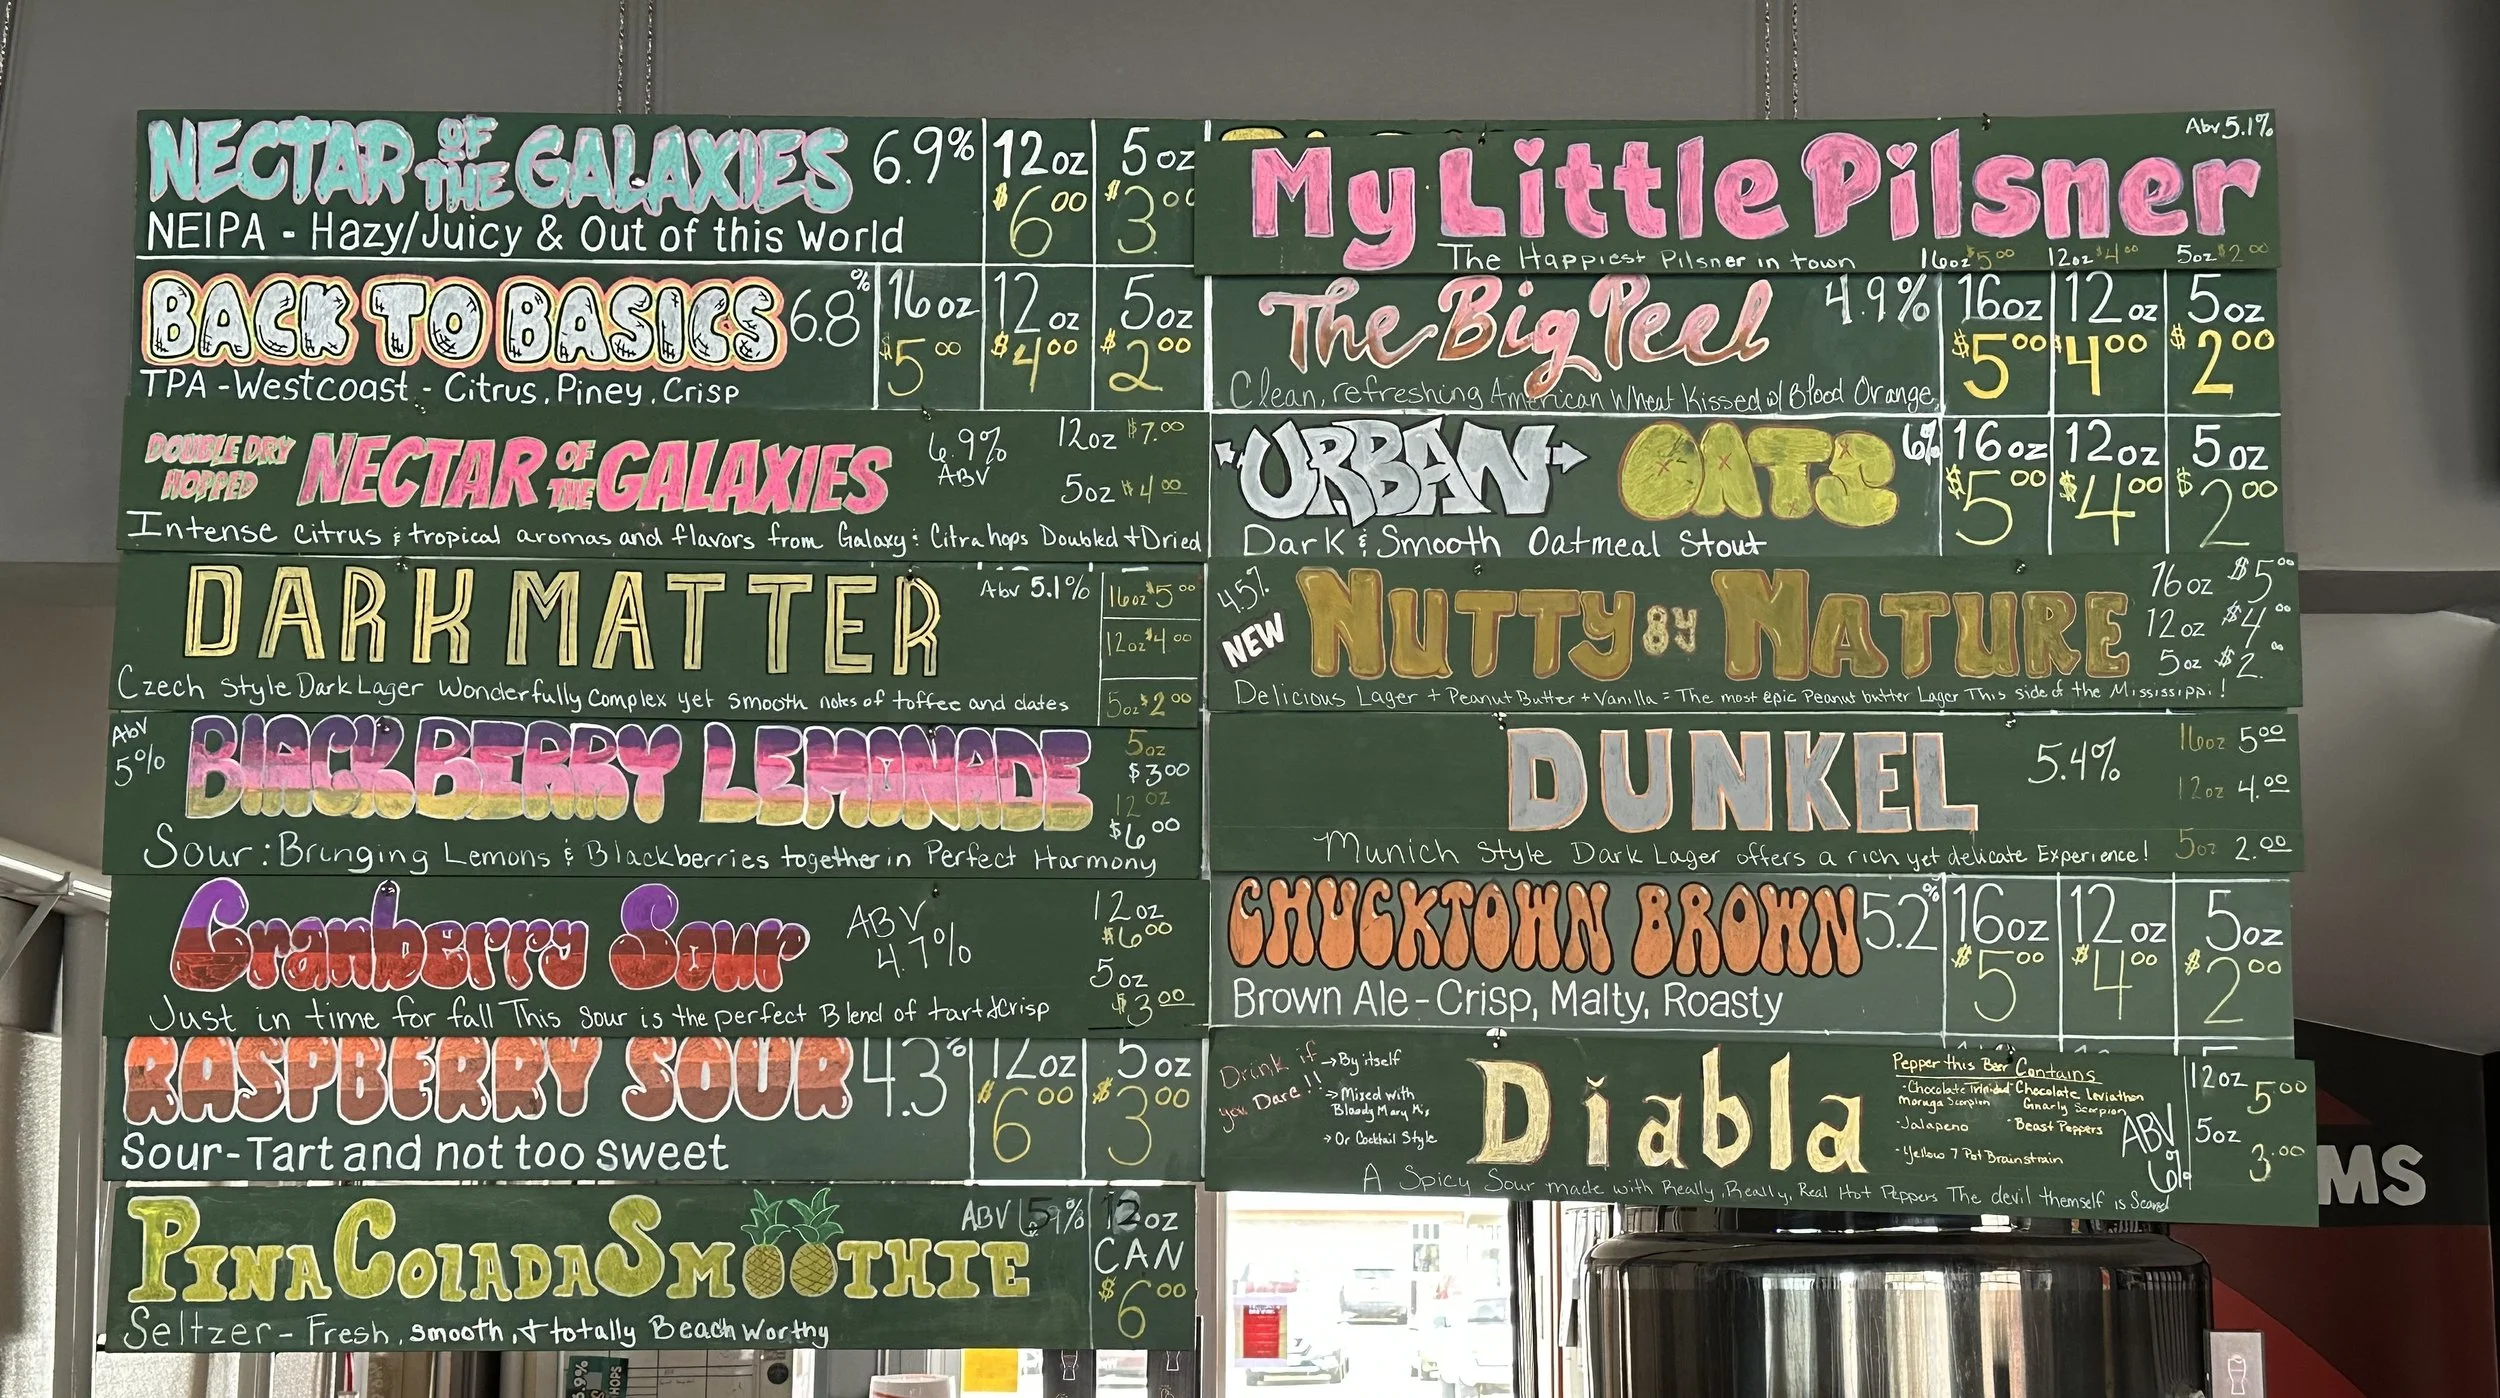 NECTAR OF THE GALAXIES 6.9% 12oz $6.00 5oz $3.00
NEIPA - Hazy/Juicy & Out of this World
BACK TO BASICS 6.8% 16oz $5.00 12oz $4.00 5oz $2.00
IPA - Westcoast - Citrus, Piney, Crisp
DOUBLE DRY HOPPED NECTAR OF THE GALAXIES 6.9% ABV 12oz $7.00
5oz $4.00
Intense Citrus & tropical aromas and flavors from Galaxy & Citra hops Doubled & Dried
DARK MATTER Abv 5.1% 16oz $5.00
12oz $4.00
Czech Style Dark Lager Wonderfully Complex yet smooth notes of toffee and dates 5oz $2.00
Abv 5% BLACKBERRY LEMONADE 5oz $3.00
12oz $6.00
Sour: Bringing Lemons & Blackberries together in Perfect Harmony
Cranberry Sour ABV 4.7% 12oz $6.00
5oz $3.00
Just in time for fall This Sour is the perfect Blend of tart & Crisp
RASPBERRY SOUR 4.3% 12oz $6.00 5oz $3.00
Sour - Tart and not too sweet
PINA COLADA SMOOTHIE ABV 5.9% 12oz CAN $6.00
Seltzer - Fresh, smooth, & totally Beach Worthy
My Little Pilsner Abv 5.1%
The Happiest Pilsner in town 16oz $5.00 12oz $4.00 5oz $2.00
The Big Peel 4.9% 16oz $5.00 12oz $4.00 5oz $2.00
Clean, refreshing American Wheat Kissed w/ Blood Orange
URBAN OATS 6% 16oz $5.00 12oz $4.00 5oz $2.00
Dark & Smooth Oatmeal Stout
4.5% NEW NUTTY BY NATURE 16oz $5.00
12oz $4.00
5oz $2.00
Delicious Lager + Peanut Butter + Vanilla = The most epic Peanut butter Lager This side of the Mississippi!
DUNKEL 5.4% 16oz 5.00
12oz 4.00
Munich Style Dark Lager offers a rich yet delicate Experience! 5oz 2.00
CHUCKTOWN BROWN 5.2% 16oz $5.00 12oz $4.00 5oz $2.00
Brown Ale - Crisp, Malty, Roasty
Drink if you Dare!!
→ By itself
→ Mixed with Bloody Mary Mix
→ Or Cocktail Style
Diabla
Pepper this Beer Contains
- Chocolate Trinidad Moruga Scorpion
Chocolate Leviathan Gnarly Scorpion
- Jalapeno
- Beast Peppers
- Yellow 7 Pot Brainstrain
ABV 6%
12oz 5.00
5oz 3.00
A Spicy Sour made with Really, Really, Real Hot Peppers The devil themself is Scared
MS
HOPS